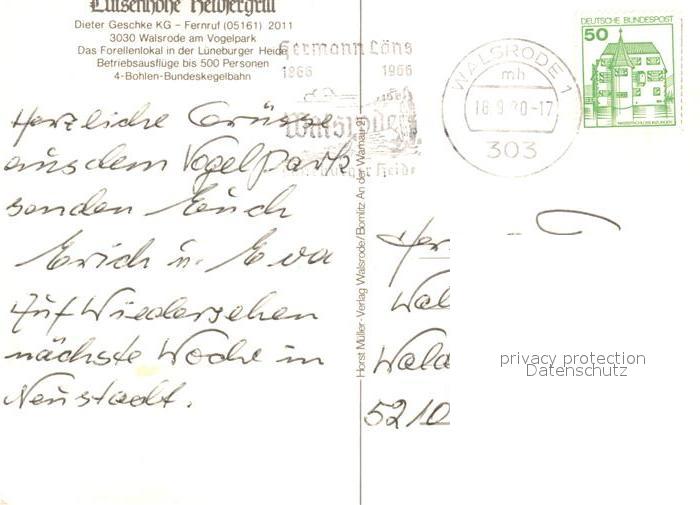 Luisenhöhe Heidjergrill
Dieter Geschke KG - Fernruf (05161) 2011
3030 Walsrode am Vogelpark
Das Forellenlokal in der Lüneburger Heide
Betriebsausflüge bis 500 Personen
4-Bohlen-Bundeskegelbahn
Hermann Löns
1866 1966
Walsrode
Lüneburger Heide
WALSRODE 1
mh
18.9.80-17
303
DEUTSCHE BUNDESPOST
50
WASSERSCHLOSS INZLINGEN
Herzliche Grüsse
aus dem Vogelpark
senden Euch
Erich u. Eva
Auf Wiedersehen
nächste Woche in
Neustadt.
Horst Müller-Verlag Walsrode/Bomlitz An der Warnau 21
Her
Wal
Wald
5210
privacy protection
Datenschutz